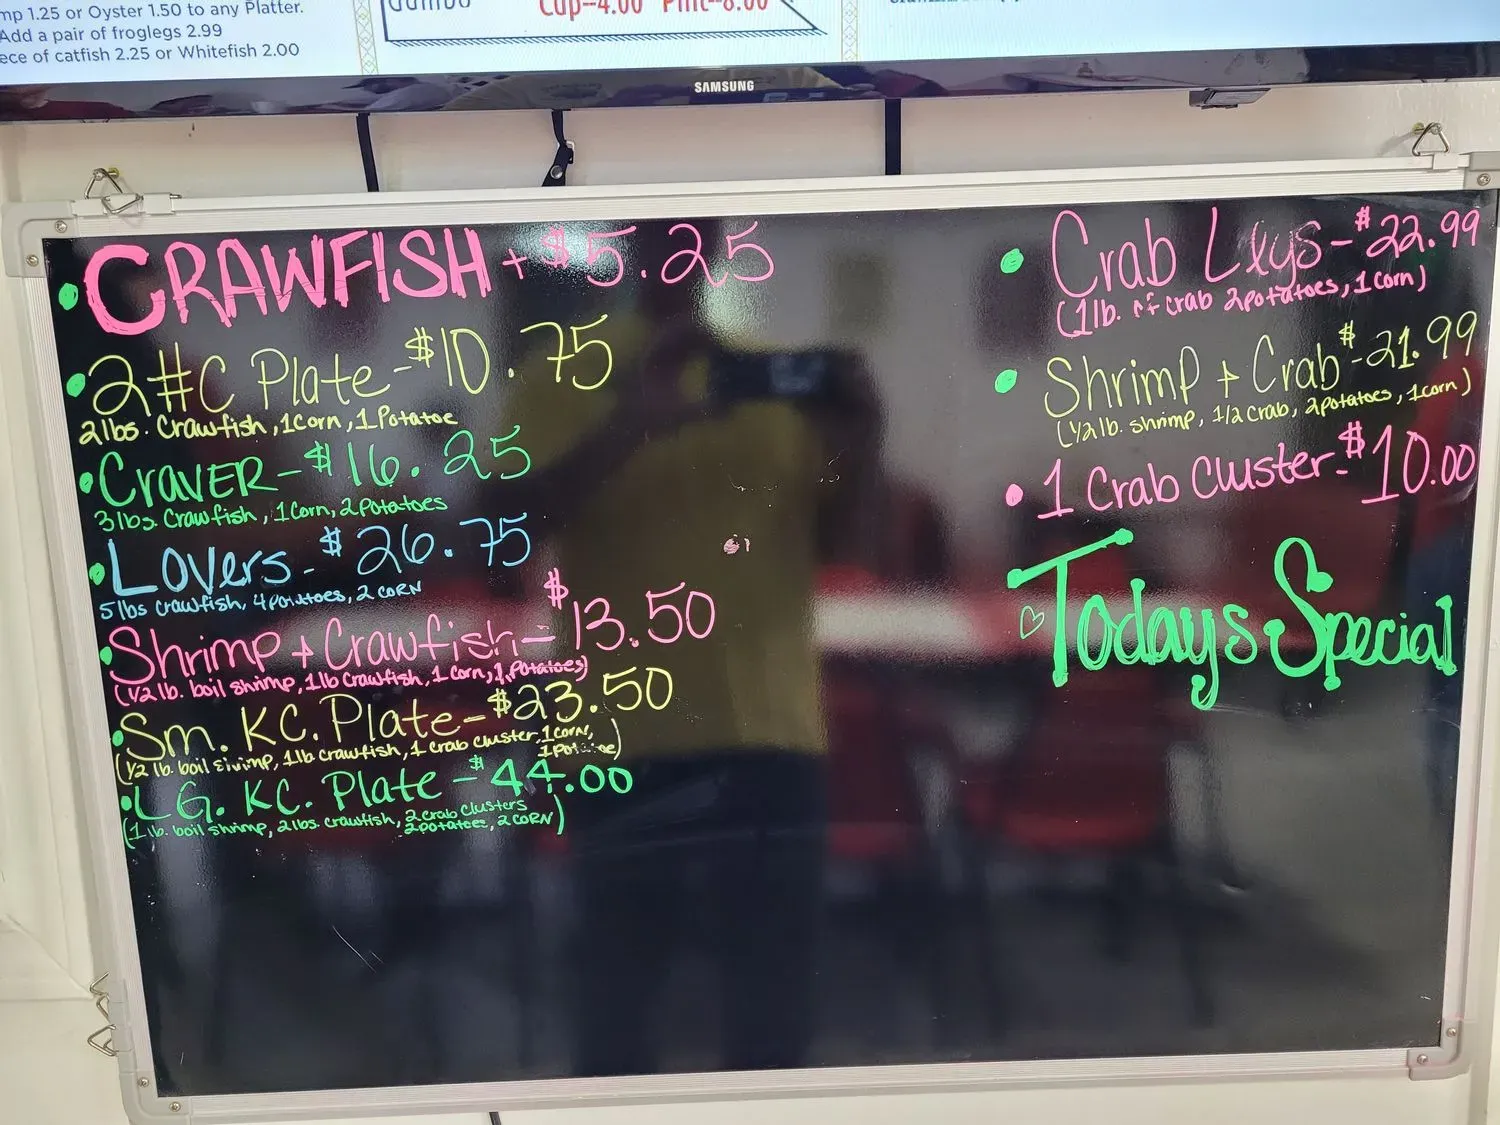 mp 1.25 or Oyster 1.50 to any Platter.
Add a pair of froglegs 2.99
ece of catfish 2.25 or Whitefish 2.00
Gumbo Cup--4.00 Pint--8.00
SAMSUNG
• CRAWFISH + $5.25
• 2#C Plate - $10.75
2lbs. Crawfish, 1Corn, 1 Potatoe
• CRAVER - $16.25
3lbs. Crawfish, 1Corn, 2potatoes
• Lovers - $26.75
5lbs crawfish, 4potatoes, 2 CORN
• Shrimp + Crawfish - $13.50
(1/2 lb. boil shrimp, 1lb Crawfish, 1 Corn, 1 Potatoes)
• Sm. KC. Plate - $23.50
(1/2 lb. boil shrimp, 1lb crawfish, 1 crab cluster, 1CORN,
1 Potatoe)
• LG. KC. Plate - $44.00
(1 lb. boil shrimp, 2lbs. crawfish, 2 crab clusters
2potatoes, 2 CORN)
• Crab Llys - $22.99
(1lb. of crab 2potatoes, 1 Corn)
• Shrimp + Crab - $21.99
(1/2 lb. shrimp, 1/2 crab, 2potatoes, 1corn)
• 1 Crab Cluster - $10.00
Todays Special